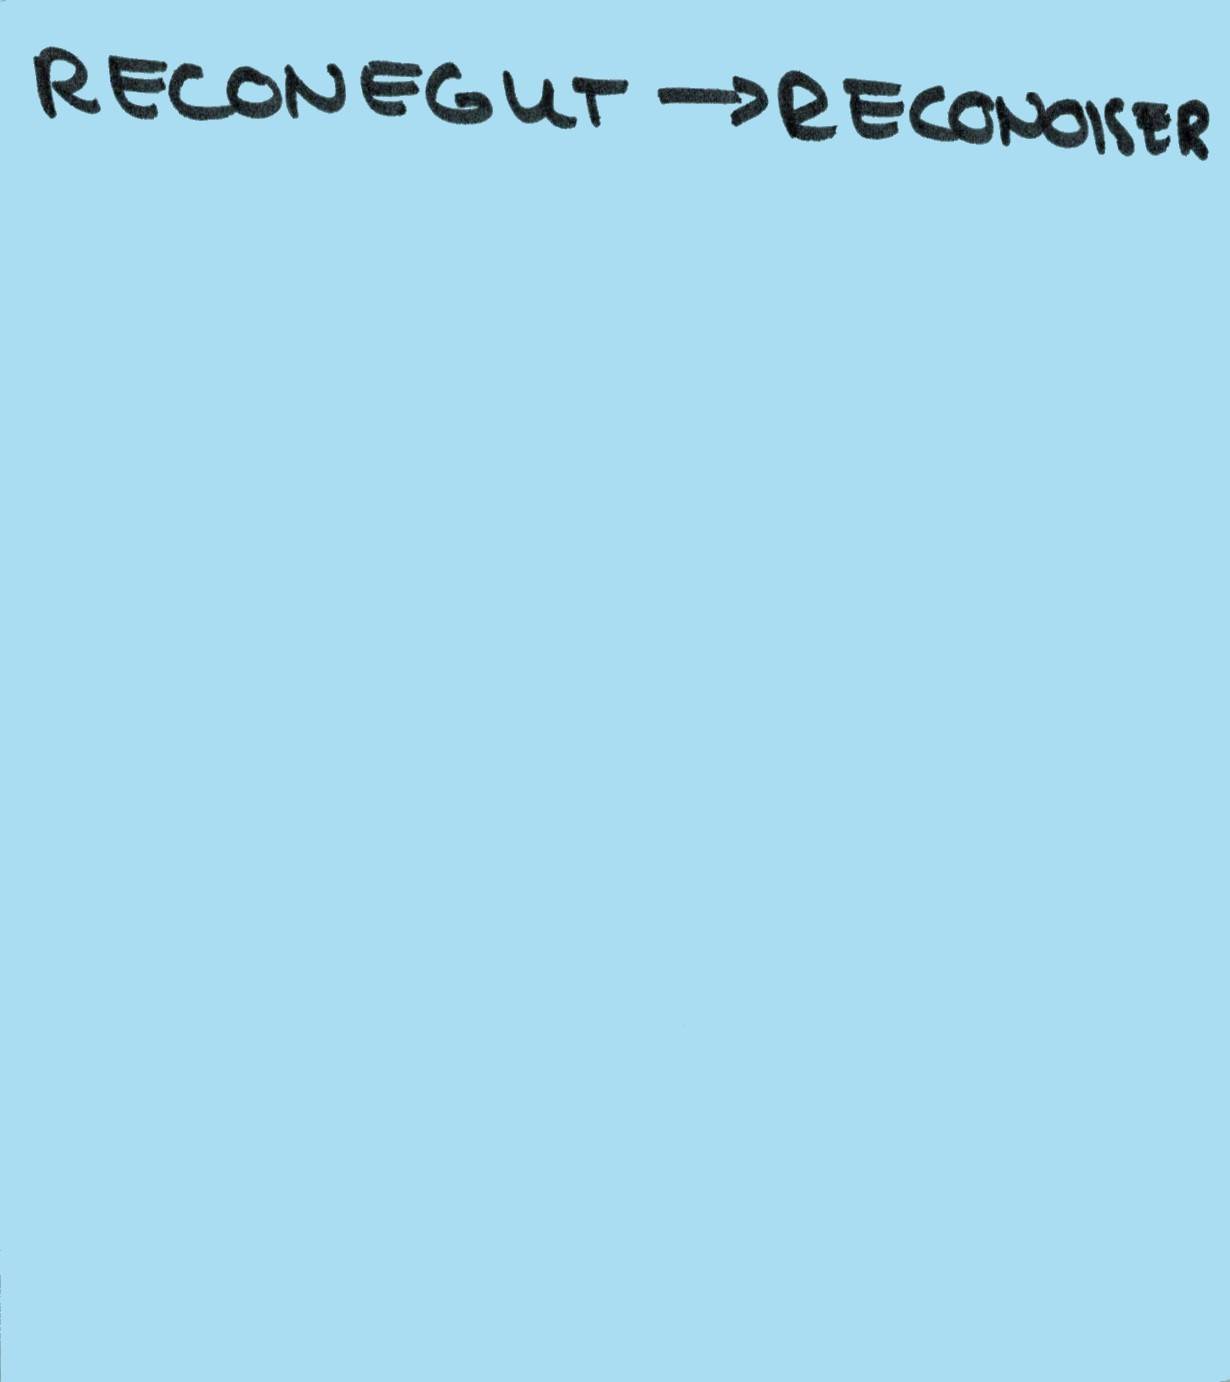 RECONEGUT → RECONOISER